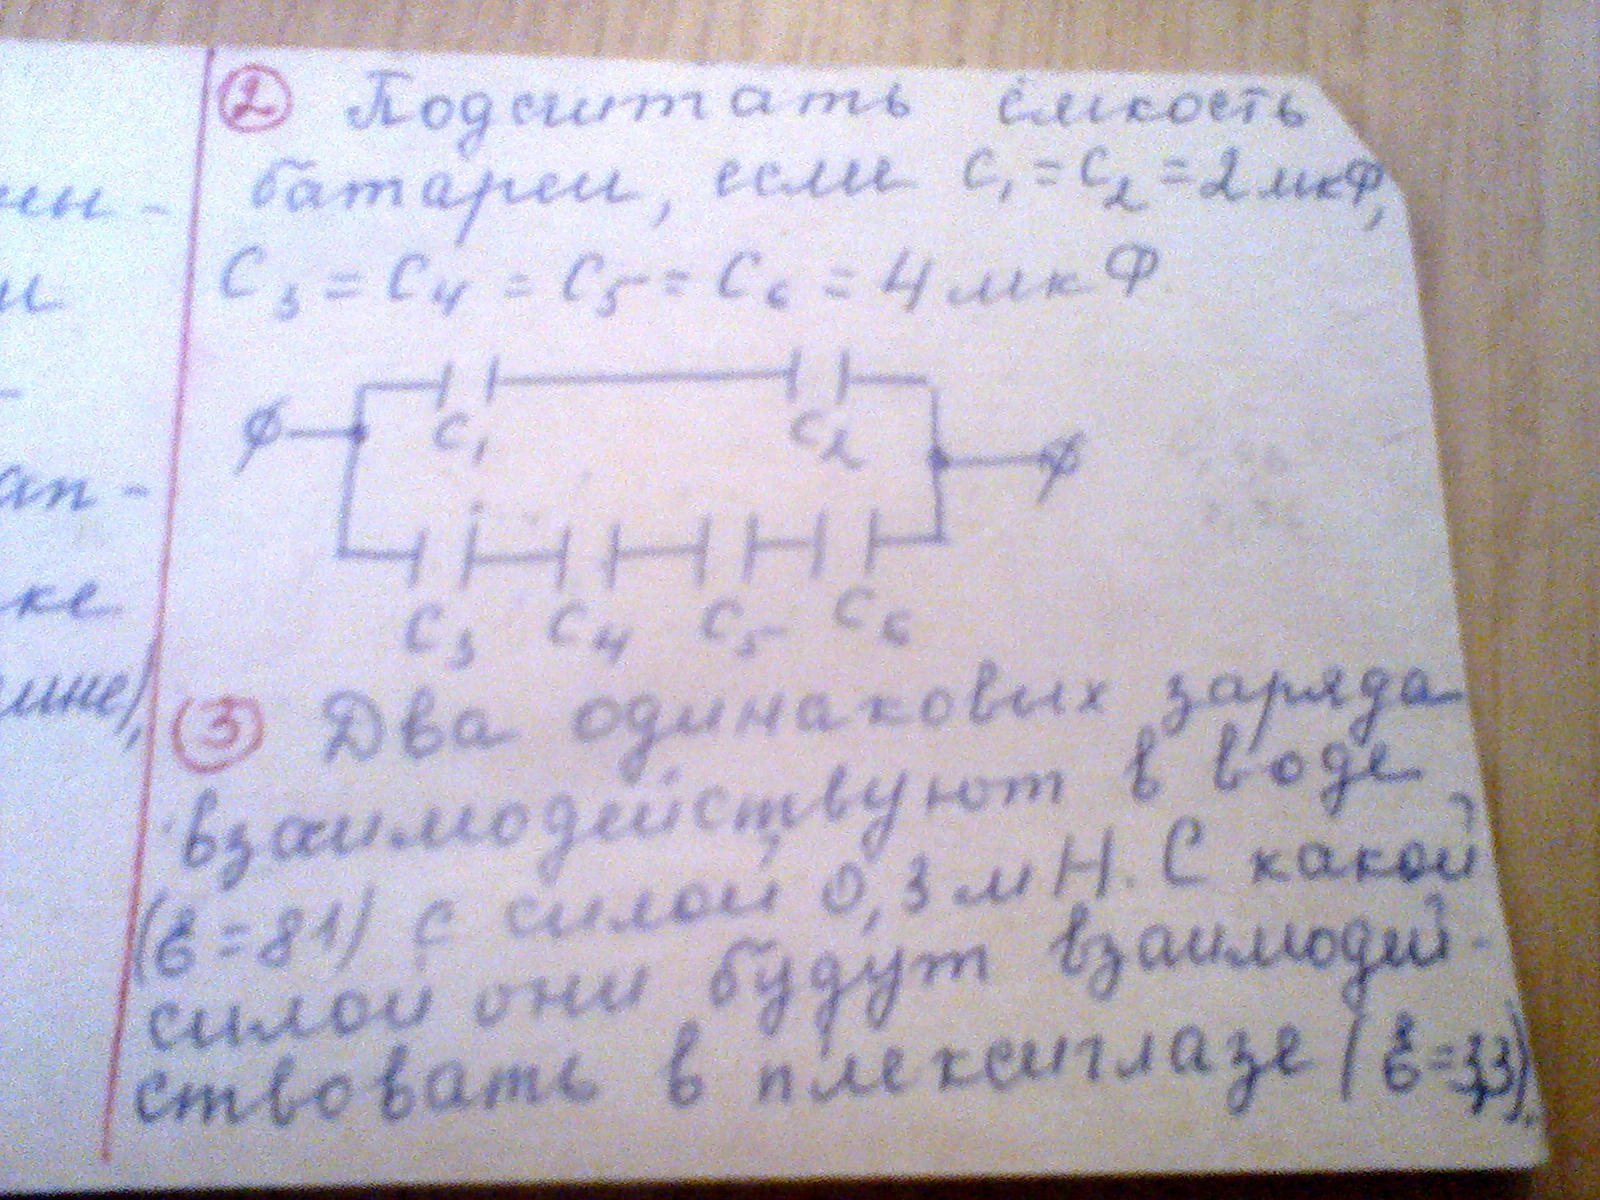 ② Подсчитать ёмкость
батареи, если C₁ = C₂ = 2 мкФ,
C₃ = C₄ = C₅ = C₆ = 4 мкФ
C₁ C₂
C₃ C₄ C₅ C₆
③ Два одинаковых заряда
взаимодействуют в воде
(ε = 81) с силой 0,3 мН. С какой
силой они будут взаимодей-
ствовать в плексиглазе (ε = 3,3).
ен-
и
-
ап-
ке
),